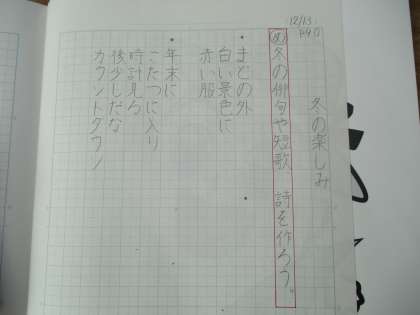 12/13
P90
冬の楽しみ
め 冬の俳句や短歌 詩を作ろう。
まどの外
白い景色に
赤い服
年末に
こたつに入り
時計見る
後少しだな
カウントダウン